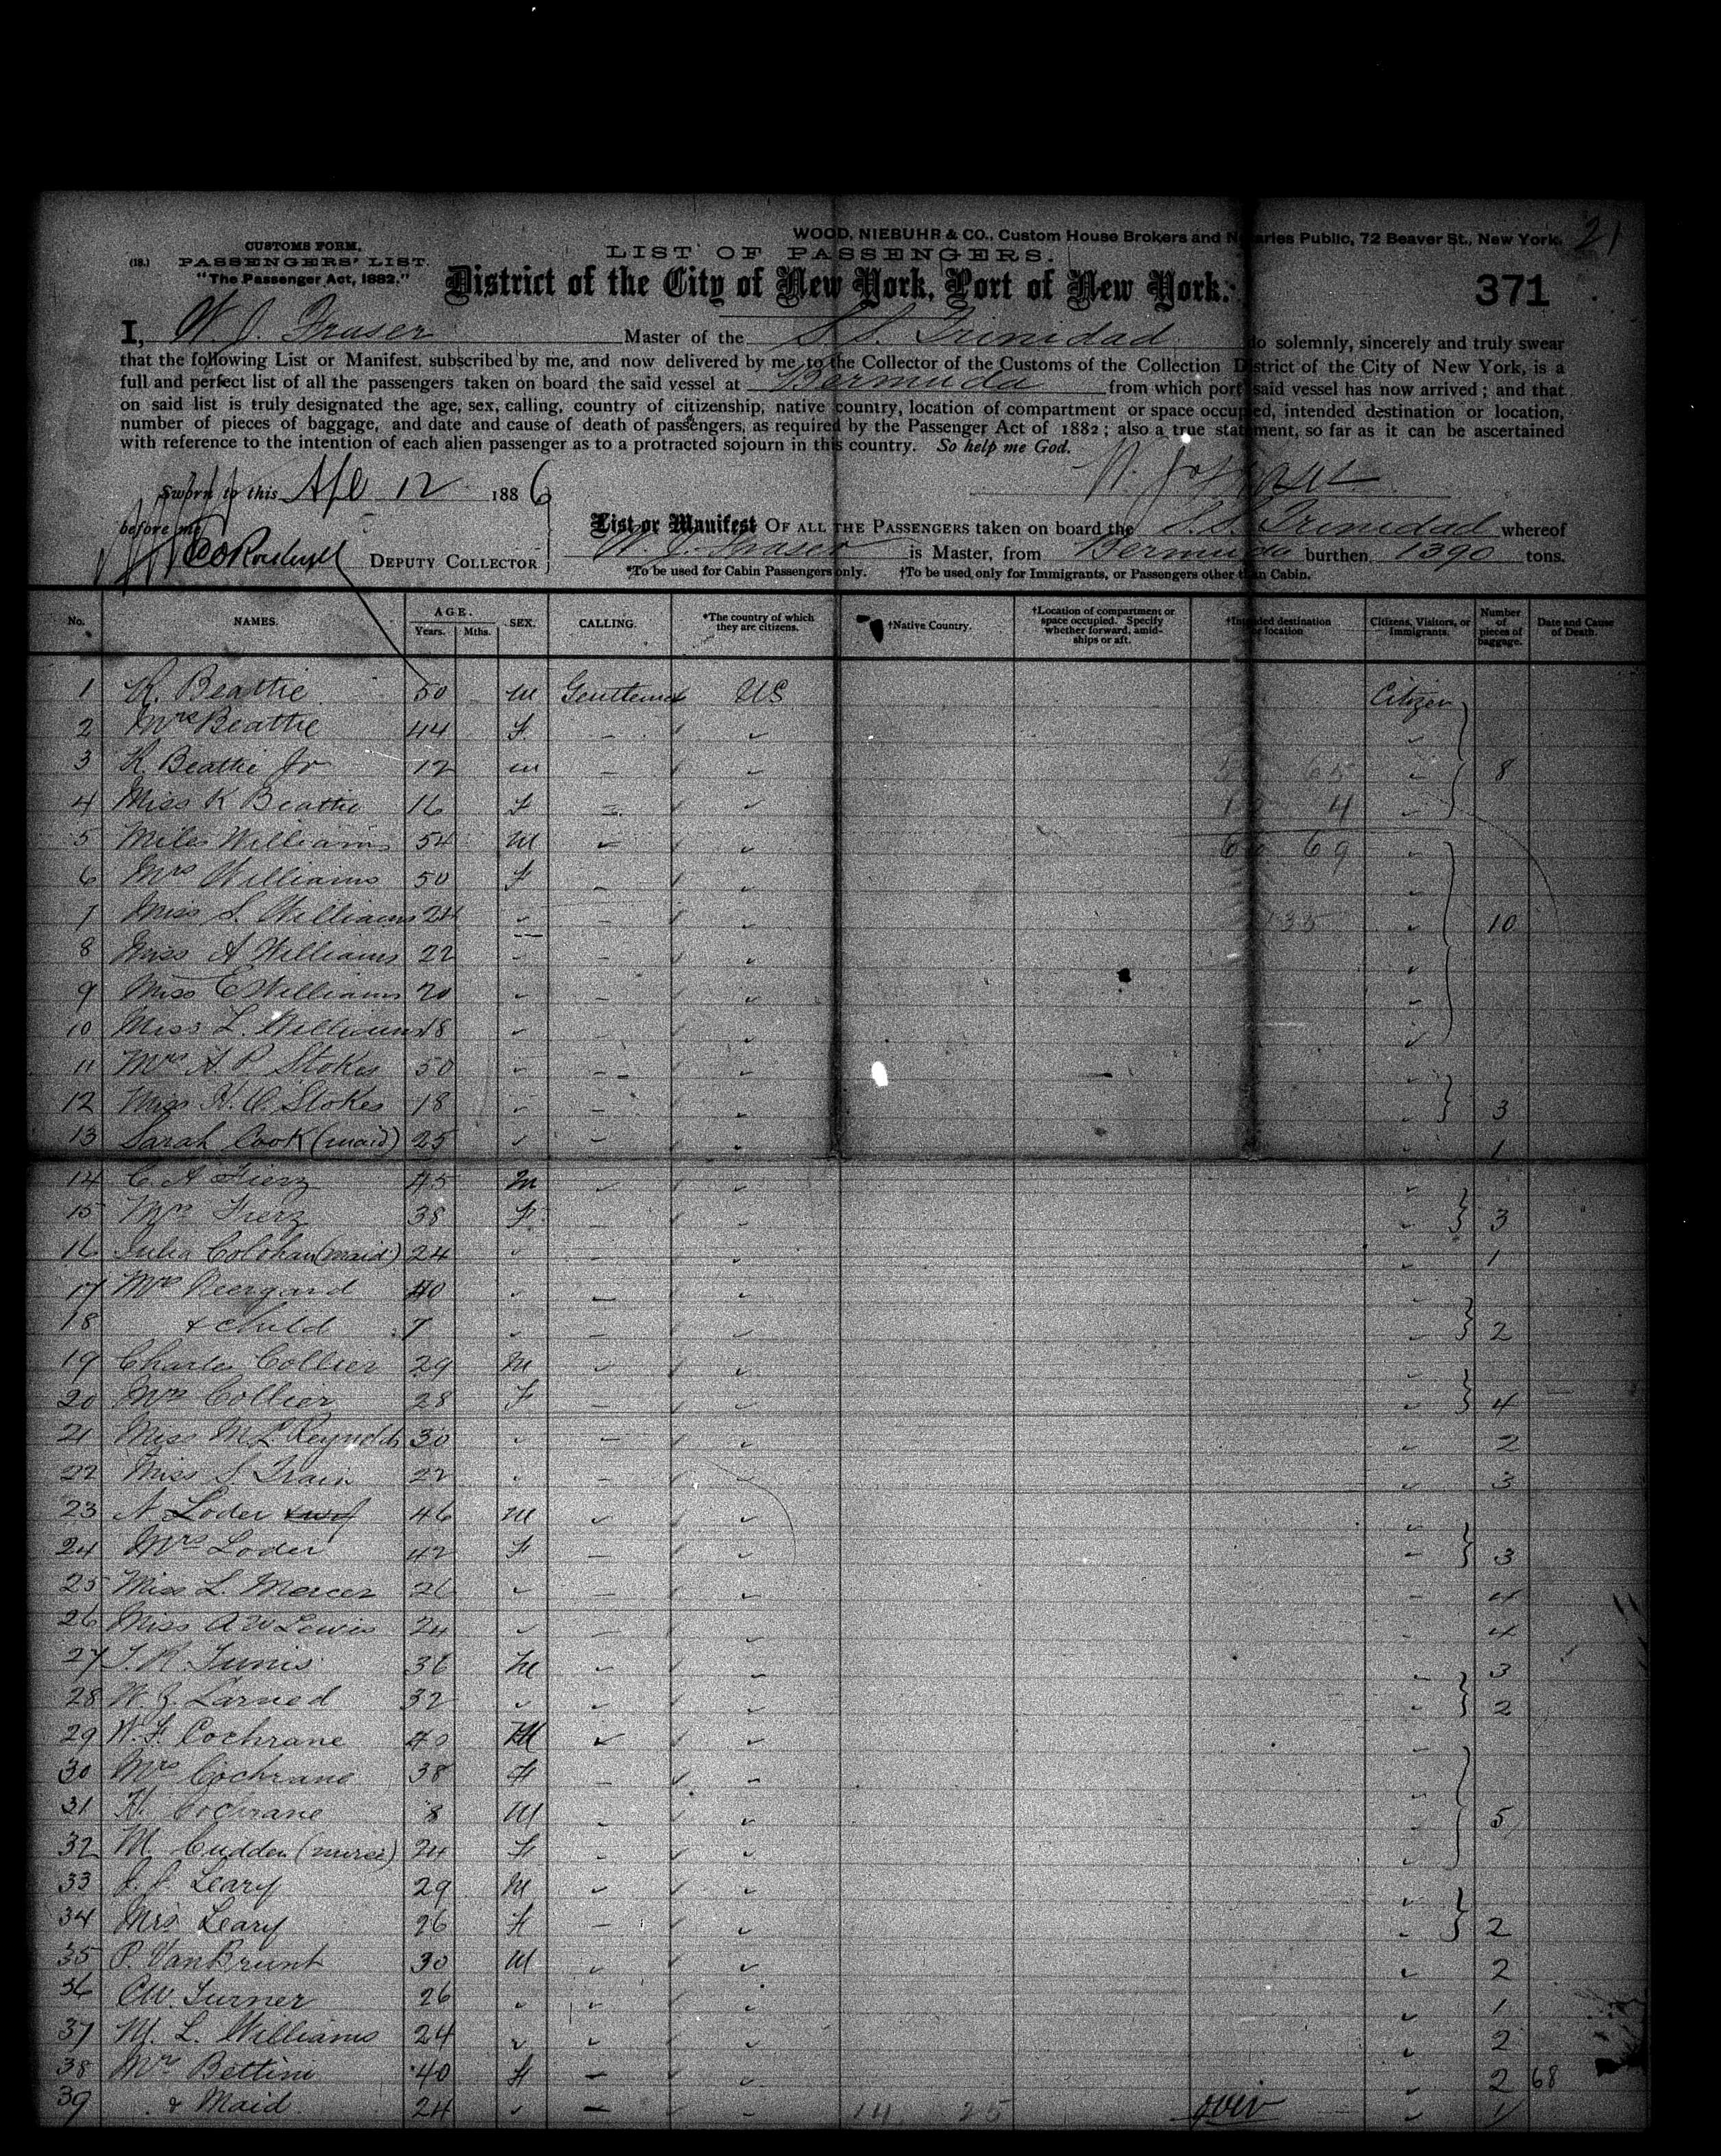 WOOD, NIEBUHR & CO., Custom House Brokers and Notaries Public, 72 Beaver St., New York. 21
CUSTOMS FORM.
LIST OF PASSENGERS.
(18.) PASSENGERS' LIST.
"The Passenger Act, 1882."
District of the City of New York, Port of New York.
371
I, W. J. Fraser Master of the S.S. Trinidad do solemnly, sincerely and truly swear
that the following List or Manifest, subscribed by me, and now delivered by me to the Collector of the Customs of the Collection District of the City of New York, is a
full and perfect list of all the passengers taken on board the said vessel at Bermuda from which port said vessel has now arrived; and that
on said list is truly designated the age, sex, calling, country of citizenship, native country, location of compartment or space occupied, intended destination or location,
number of pieces of baggage, and date and cause of death of passengers, as required by the Passenger Act of 1882; also a true statement, so far as it can be ascertained
with reference to the intention of each alien passenger as to a protracted sojourn in this country. So help me God.
W. J. Fraser
Sworn to this Apl 12 1886
before me
List or Manifest OF ALL THE PASSENGERS taken on board the S.S. Trinidad whereof
DEPUTY COLLECTOR
W. J. Fraser is Master, from Bermuda burthen 1390 tons.
*To be used for Cabin Passengers only. †To be used only for Immigrants, or Passengers other than Cabin.
No. NAMES. AGE. Years. Mths. SEX. CALLING. *The country of which they are citizens. †Native Country. †Location of compartment or space occupied. Specify whether forward, amidships or aft. †Intended destination or location Citizens, Visitors, or Immigrants. Number of pieces of baggage. Date and Cause of Death.
1 R. Beattie 50 m Gentleman US Citizen
2 Mrs Beattie 44 f
3 R. Beattie Jr 12 m 65 8
4 Miss K Beattie 16 f 4
5 Miles Williams 54 m 69
6 Mrs Williams 50 f
7 Miss S. Williams 24 10
8 Miss A Williams 22
9 Miss E Williams 20
10 Miss L. Williams 18
11 Mrs A. P Stokes 50
12 Miss H. C. Stokes 18 3
13 Sarah Cook (maid) 25 1
14 C. A Fierz 45 m
15 Mrs Fierz 38 f 3
16 Julia Colohan (maid) 24 1
17 Mrs Reergard 40
18 & child 7 2
19 Charles Collier 29 m
20 Mrs Collier 28 f 4
21 Miss M L Reynolds 30 2
22 Miss S. Train 22 3
23 A Loder 46 m
24 Mrs Loder 42 f 3
25 Miss L. Mercer 26 4
26 Miss A W Lewis 24 4
27 T. R. Tunis 36 m 3
28 W. Z. Larned 32 2
29 W. F. Cochrane 40 M
30 Mrs Cochrane 38 f
31 H. Cochrane 8 m 5
32 M. Cudden (nurse) 24 f
33 J. J. Leary 29 m
34 Mrs Leary 26 f 2
35 P. VanBrunt 30 m 2
36 C.W. Turner 26 1
37 M. L. Williams 24 2
38 Mrs Bettini 40 f 2 68
39 & Maid 24 14 25 over 1